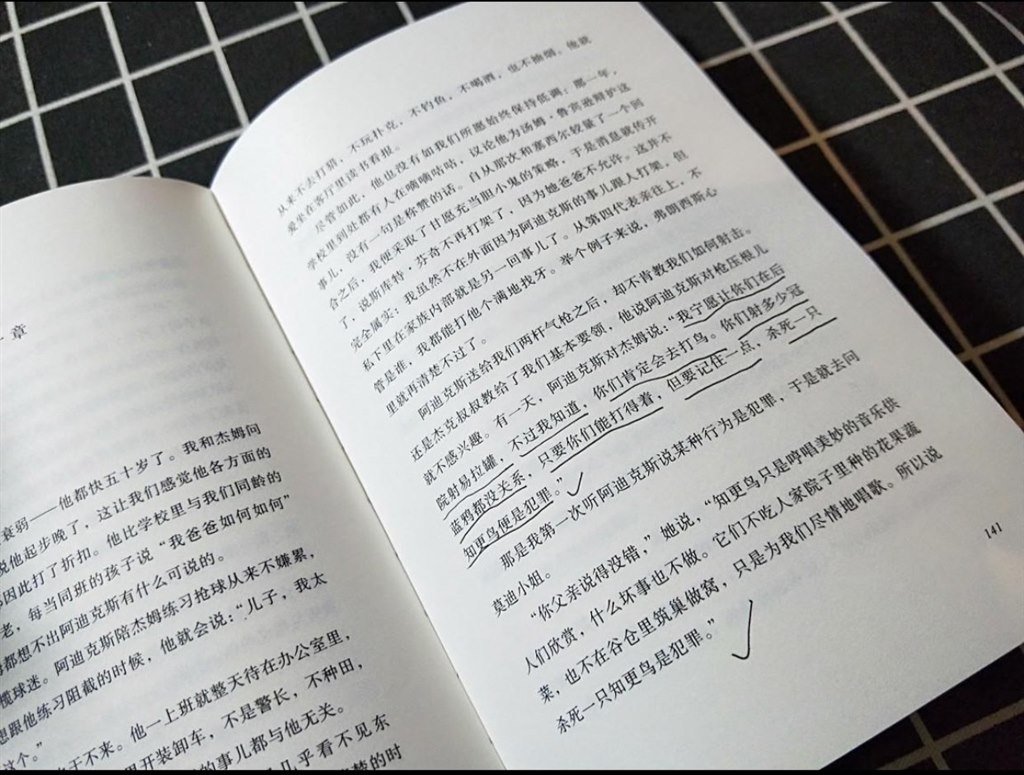 章
我和杰姆问
衰弱——他都快五十岁了。
说他起步晚了，这让我们感觉他各方面的
因此打了折扣。他比学校里与我们同龄的
老，每当同班的孩子说“我爸爸如何如何”
都想不出阿迪克斯有什么可说的。
榄球迷。阿迪克斯陪杰姆练习抢球从来不嫌累，
想跟他练习阻截的时候，他就会说：“儿子，我太
这个。”
于不来。他一上班就整天待在办公室里，
开装卸车，不是警长，不种田，
的事儿都与他无关。
几乎看不见东
的时
从来不去打猎，不玩扑克，不钓鱼，不喝酒，也不抽烟。他就
爱坐在客厅里读书看报。
尽管如此，他也没有如我们所愿始终保持低调：那一年，
学校里到处都有人在嘀嘀咕咕，议论他为汤姆·鲁宾逊辩护这
事儿，没有一句是称赞的话。自从那次和塞西尔较量了一个回
合之后，我便采取了甘愿充当胆小鬼的策略，于是消息就传开
了，说斯库特·芬奇不再打架了，因为她爸爸不允许。这并不
完全属实：我虽然不在外面因为阿迪克斯的事儿跟人打架，但
私下里在家族内部就是另一回事儿了。从第四代表亲往上，不
管是谁，我都能打他个满地找牙。举个例子来说，弗朗西斯心
里就再清楚不过了。
阿迪克斯送给我们两杆气枪之后，却不肯教我们如何射击。
还是杰克叔叔教给了我们基本要领，他说阿迪克斯对枪压根儿
就不感兴趣。有一天，阿迪克斯对杰姆说：“我宁愿让你们在后
院射易拉罐，不过我知道，你们肯定会去打鸟。你们射多少冠
蓝鸦都没关系，只要你们能打得着，但要记住一点，杀死一只
知更鸟便是犯罪。”
那是我第一次听阿迪克斯说某种行为是犯罪，于是就去问
莫迪小姐。
“你父亲说得没错，”她说，“知更鸟只是哼唱美妙的音乐供
人们欣赏，什么坏事也不做。它们不吃人家院子里种的花果蔬
菜，也不在谷仓里筑巢做窝，只是为我们尽情地唱歌。所以说
杀死一只知更鸟是犯罪。”
141